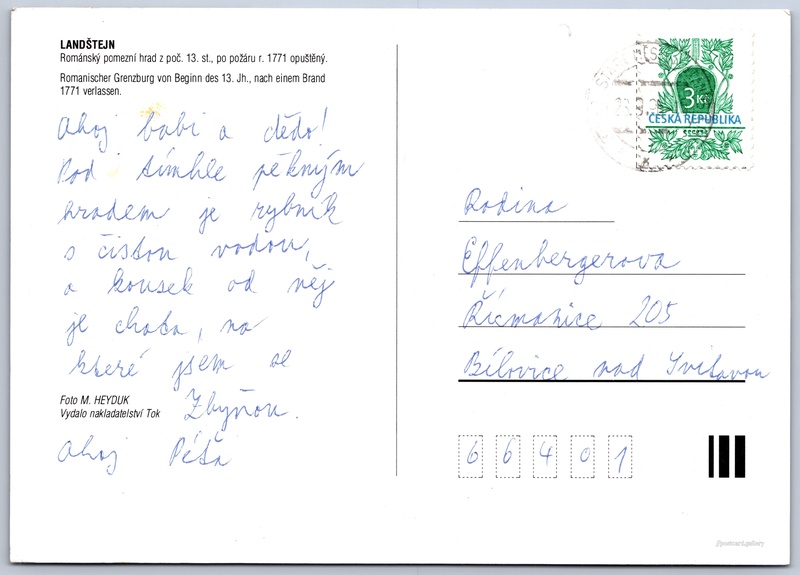 LANDŠTEJN
Románský pomezní hrad z poč. 13. st., po požáru r. 1771 opuštěný.
Romanischer Grenzburg von Beginn des 13. Jh., nach einem Brand
1771 verlassen.
Ahoj babi a dědo!
Pod tímhle pěkným
hradem je rybník
s čistou vodou,
a kousek od něj
je chata, na
které jsem se
Zbyňou.
Ahoj Péťa
Foto M. HEYDUK
Vydalo nakladatelství Tok
3 Kč
ČESKÁ REPUBLIKA
Rodina
Effenbergerova
Řícmanice 205
Bílovice nad Svitavou
6 6 4 0 1